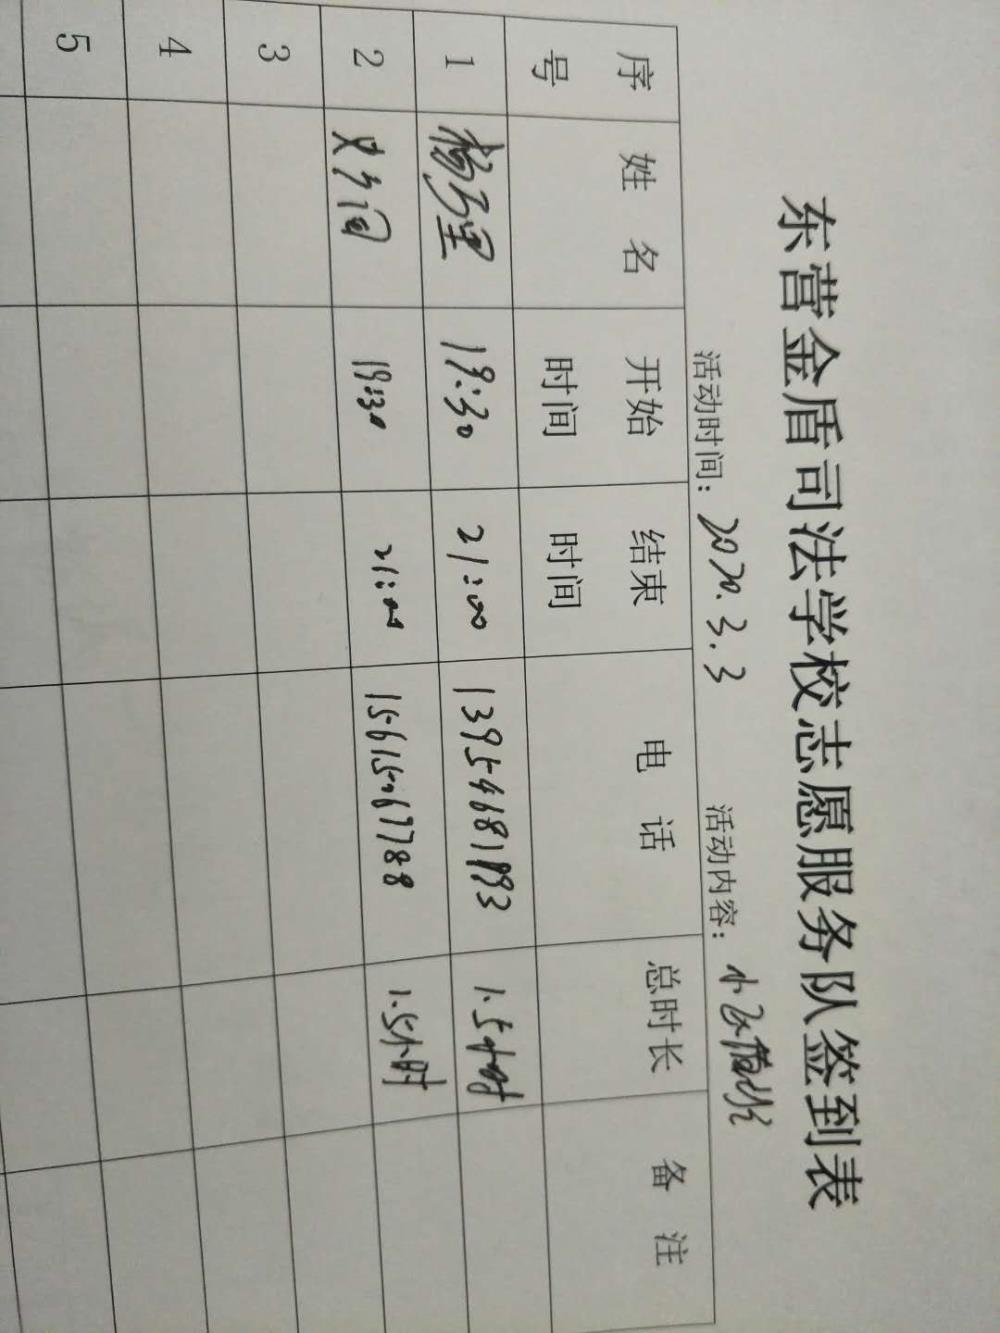 东营金盾司法学校志愿服务队签到表
活动时间：2020.3.3 活动内容：小区值班
序号 姓名 开始时间 结束时间 电话 总时长 备注
1 19:30 21:00 13954681993 1.5小时
2 19:30 21:00 15615067788 1.5小时
3
4
5